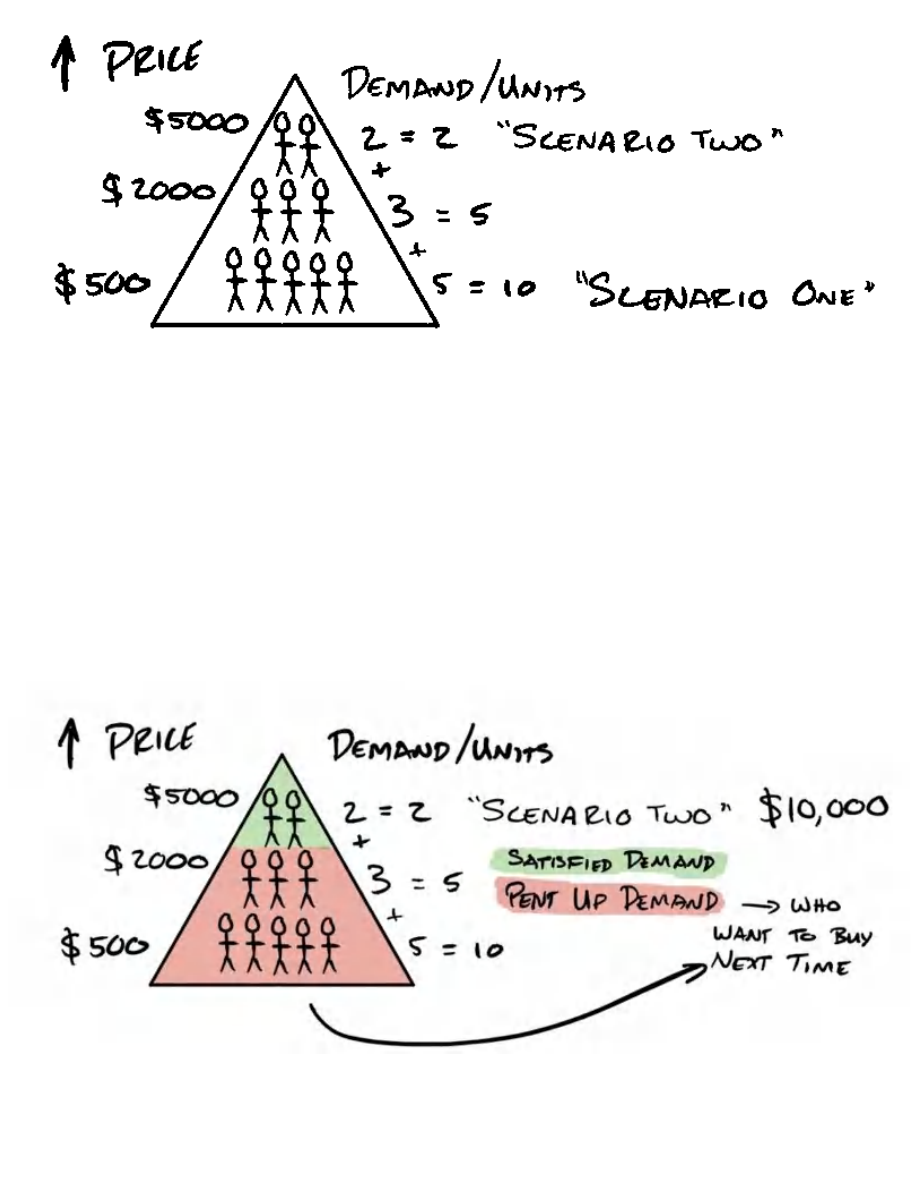 ↑ PRICE
DEMAND/UNITS
$5000
2 = 2 "SCENARIO TWO"
+
$2000
3 = 5
+
$500
5 = 10 "SCENARIO ONE"
↑ PRICE
DEMAND/UNITS
$5000
2 = 2 "SCENARIO TWO" $10,000
+
$2000
SATISFIED DEMAND
3 = 5
PENT UP DEMAND → WHO
WANT TO BUY
NEXT TIME
+
$500
5 = 10